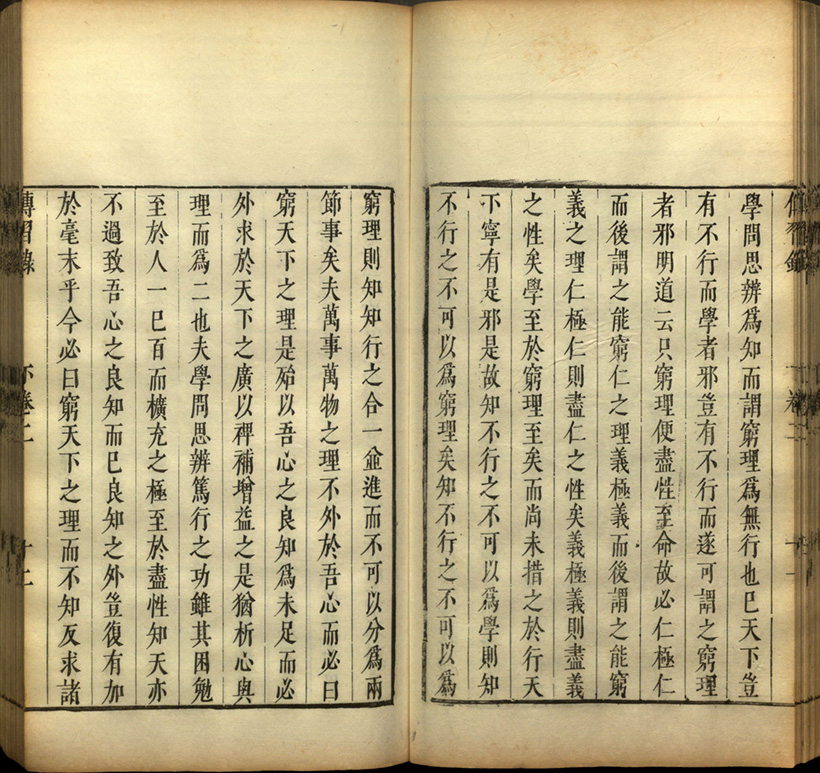 學問思辨爲知而謂窮理爲無行也巳天下豈
有不行而學者邪豈有不行而遂可謂之窮理
者邪明道云只窮理便盡性至命故必仁極仁
而後謂之能窮仁之理義極義而後謂之能窮
義之理仁極仁則盡仁之性矣義極義則盡義
之性矣學至於窮理至矣而尚未措之於行天
下寧有是邪是故知不行之不可以爲學則知
不行之不可以爲窮理矣知不行之不可以爲
窮理則知知行之合一並進而不可以分爲兩
節事矣夫萬事萬物之理不外於吾心而必曰
窮天下之理是殆以吾心之良知爲未足而必
外求於天下之廣以裨補增益之是猶析心與
理而爲二也夫學問思辨篤行之功雖其困勉
至於人一巳百而擴充之極至於盡性知天亦
不過致吾心之良知而巳良知之外豈復有加
於毫末乎今必曰窮天下之理而不知反求諸
傳習錄 下卷二 十二